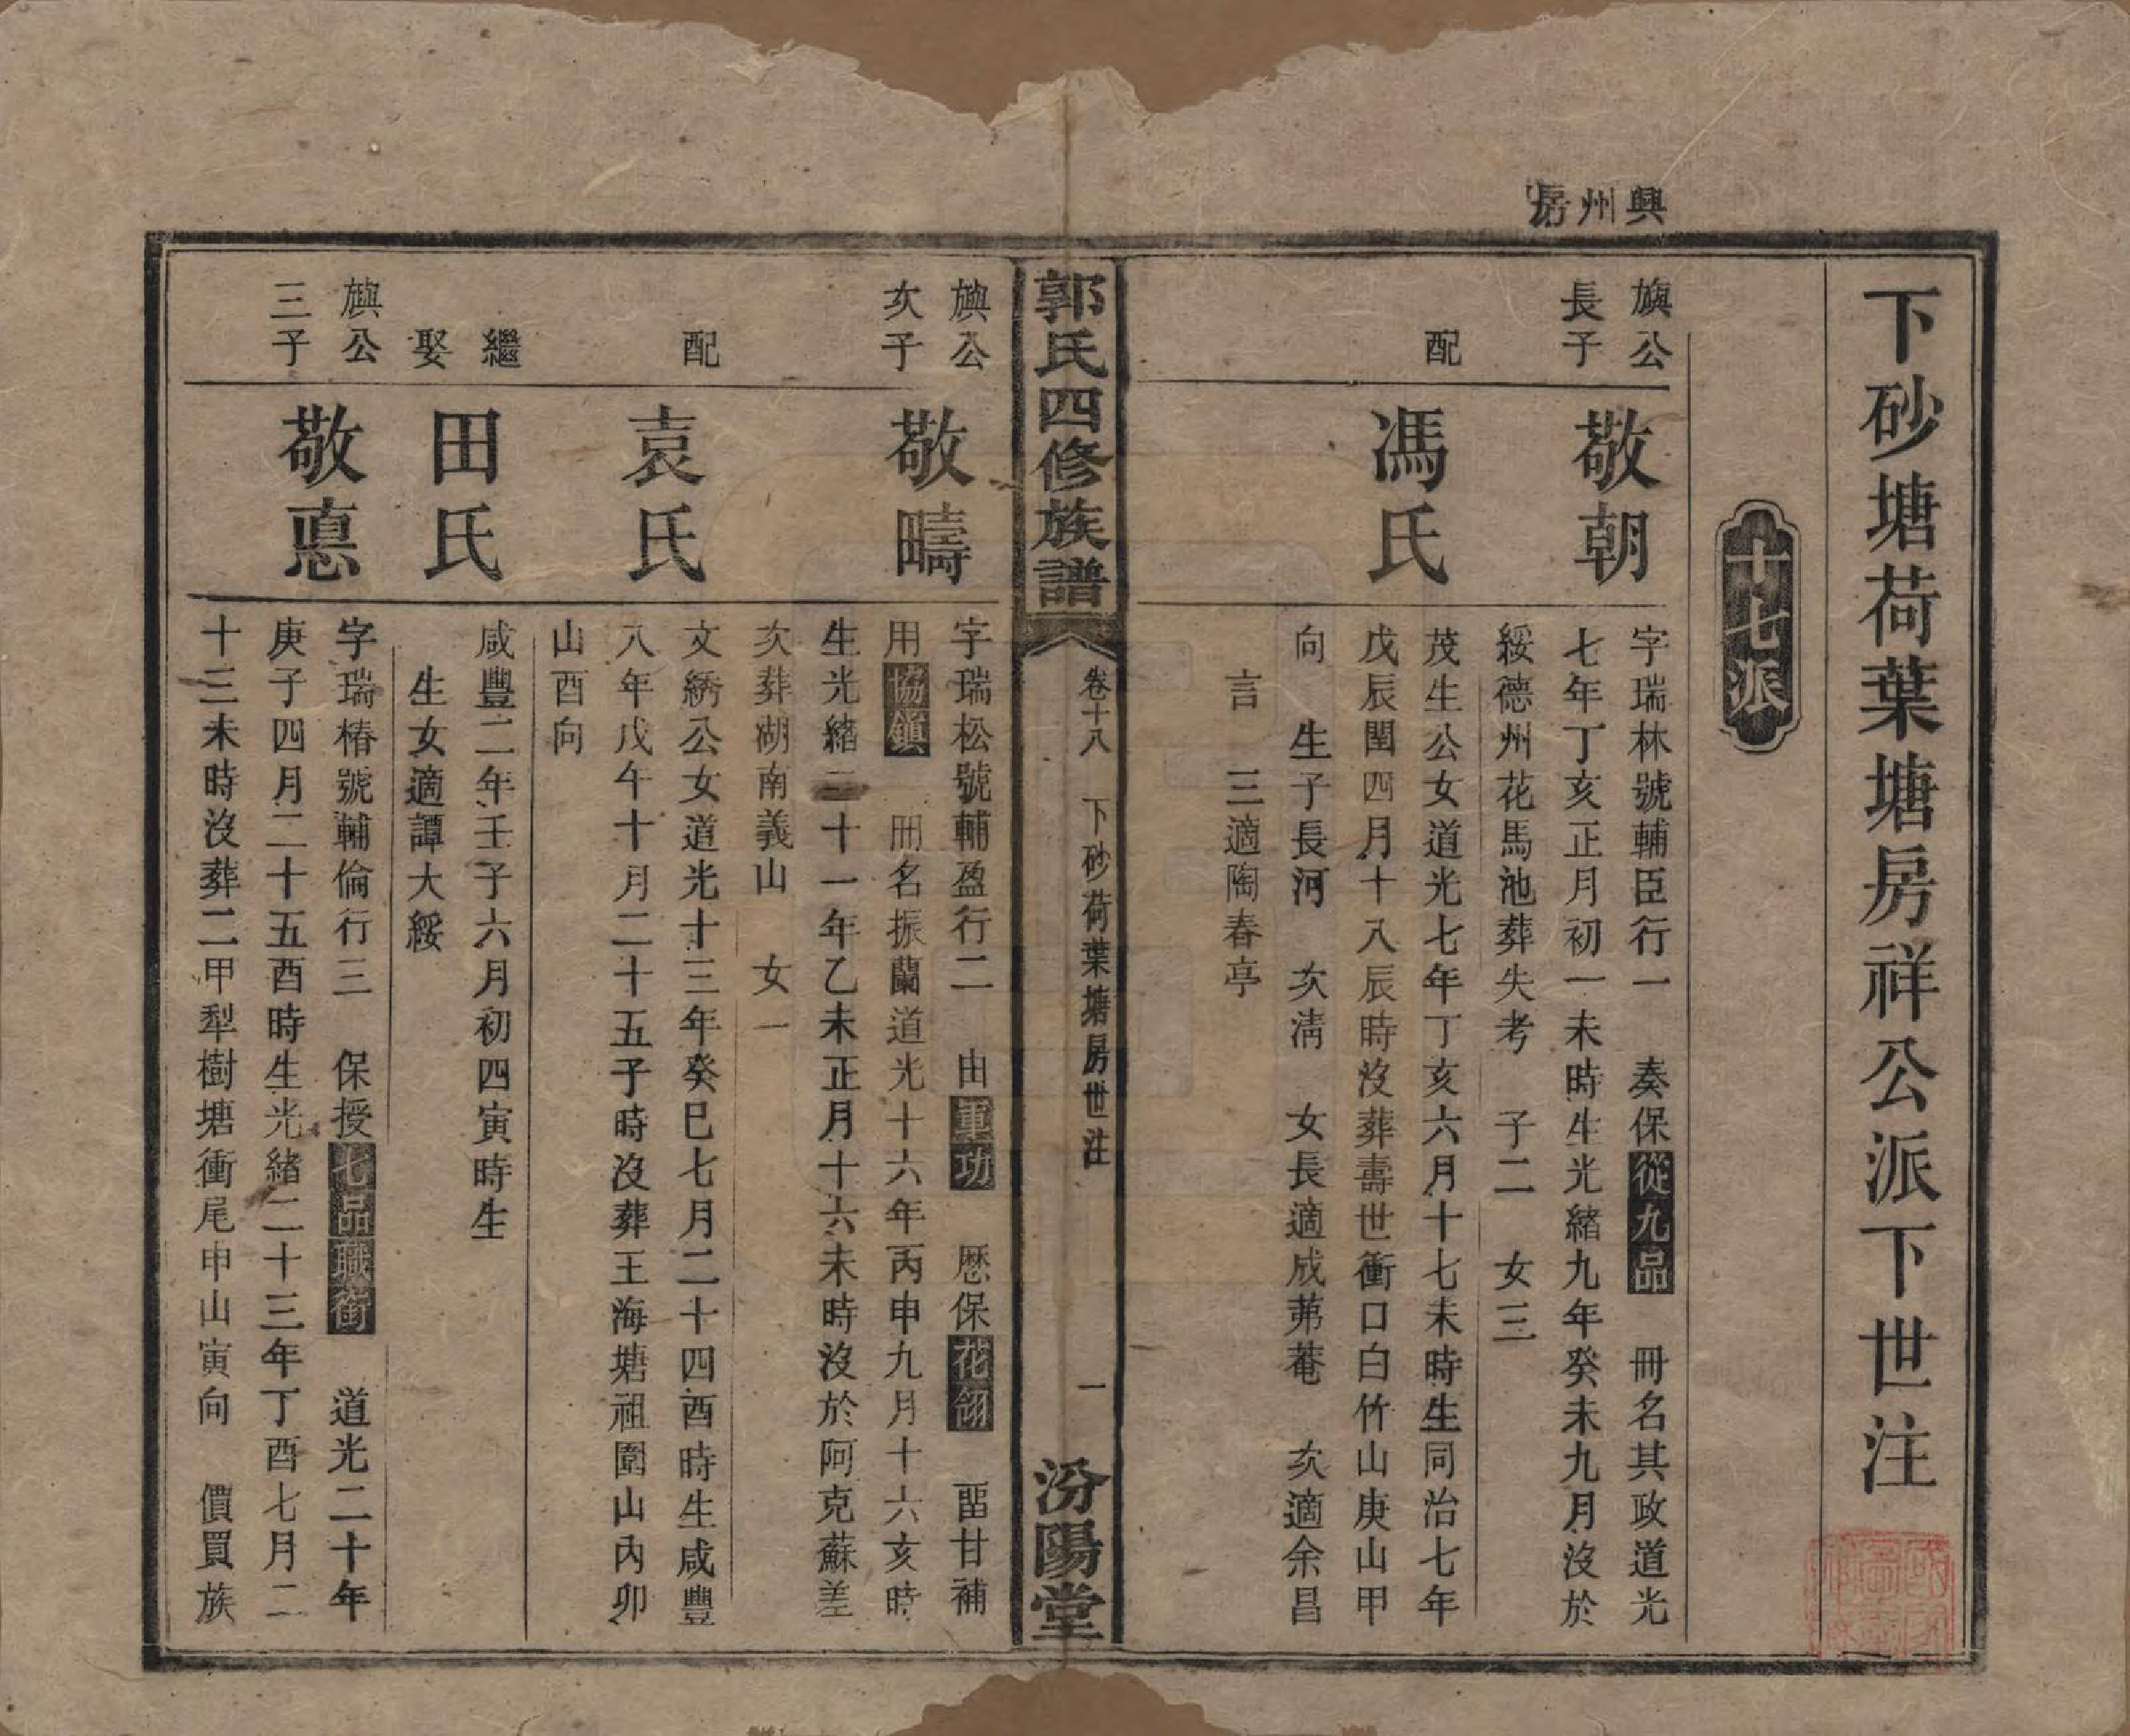 興州房
下砂塘荷葉塘房祥公派下世注
十七派
旟公
長子
敬朝
字瑞林號輔臣行一 奏保從九品 冊名其政道光
七年丁亥正月初一未時生光緒九年癸未九月沒於
綏德州花馬池葬失考 子二 女三
配
馮氏
茂生公女道光七年丁亥六月十七未時生同治七年
戊辰閏四月十八辰時沒葬壽世衝口白竹山庚山甲
向 生子長河 次淸 女長適成茀菴 次適余昌
言 三適陶春亭
郭氏四修族譜
卷十八 下砂荷葉塘房世注
一
汾陽堂
旟公
次子
敬疇
字瑞松號輔盈行二 由軍功 歷保花翎 畱甘補
用協鎮 冊名振蘭道光十六年丙申九月十六亥時
生光緒二十一年乙未正月十六未時沒於阿克蘇差
次葬湖南義山 女一
配
袁氏
文綉公女道光十三年癸巳七月二十四酉時生咸豐
八年戊午十月二十五子時沒葬王海塘祖圍山內卯
山酉向
繼
娶
田氏
咸豐二年壬子六月初四寅時生
生女適譚大綏
旟公
三子
敬悳
字瑞椿號輔倫行三 保授七品職銜 道光二十年
庚子四月二十五酉時生光緒二十三年丁酉七月二
十三未時沒葬二甲犁樹塘衝尾申山寅向 價買族